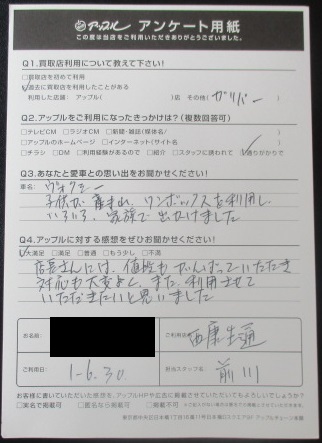 アップル アンケート用紙
この度は当店をご利用いただきありがとうございました。
Q1.買取店利用について教えて下さい!
□買取店を初めて利用
□過去に買取店を利用したことがある
利用した店舗: アップル( )店 その他( ガリバー )
Q2.アップルをご利用になったきっかけは?(複数回答可)
□テレビCM □ラジオCM □新聞・雑誌(媒体名/ )
□アップルのホームページ □インターネット(サイト名 )
□チラシ □DM □利用経験があるので □紹介 □スタッフに誘われて □通りがかりで
Q3.あなたと愛車との思い出をお聞かせください!
車名: ヴォクシー
子供が産まれ、ワンボックスを利用し
いろいろ、家族で出かけました
Q4.アップルに対する感想をぜひお聞かせください!
□大満足 □満足 □普通 □もう少し □不満
店長さんには、値段もがんばっていただき
対応も大変よく、また、利用させて
いただきたいと思いました
お名前
ご利用店
西康生通
ご利用日
1.6.30
担当スタッフ名
前川
お客様に書いていただきました感想を、アップルHPや広告に掲載させていただいてもよろしいでしょうか?
□実名で掲載可 □匿名なら掲載可 □不可